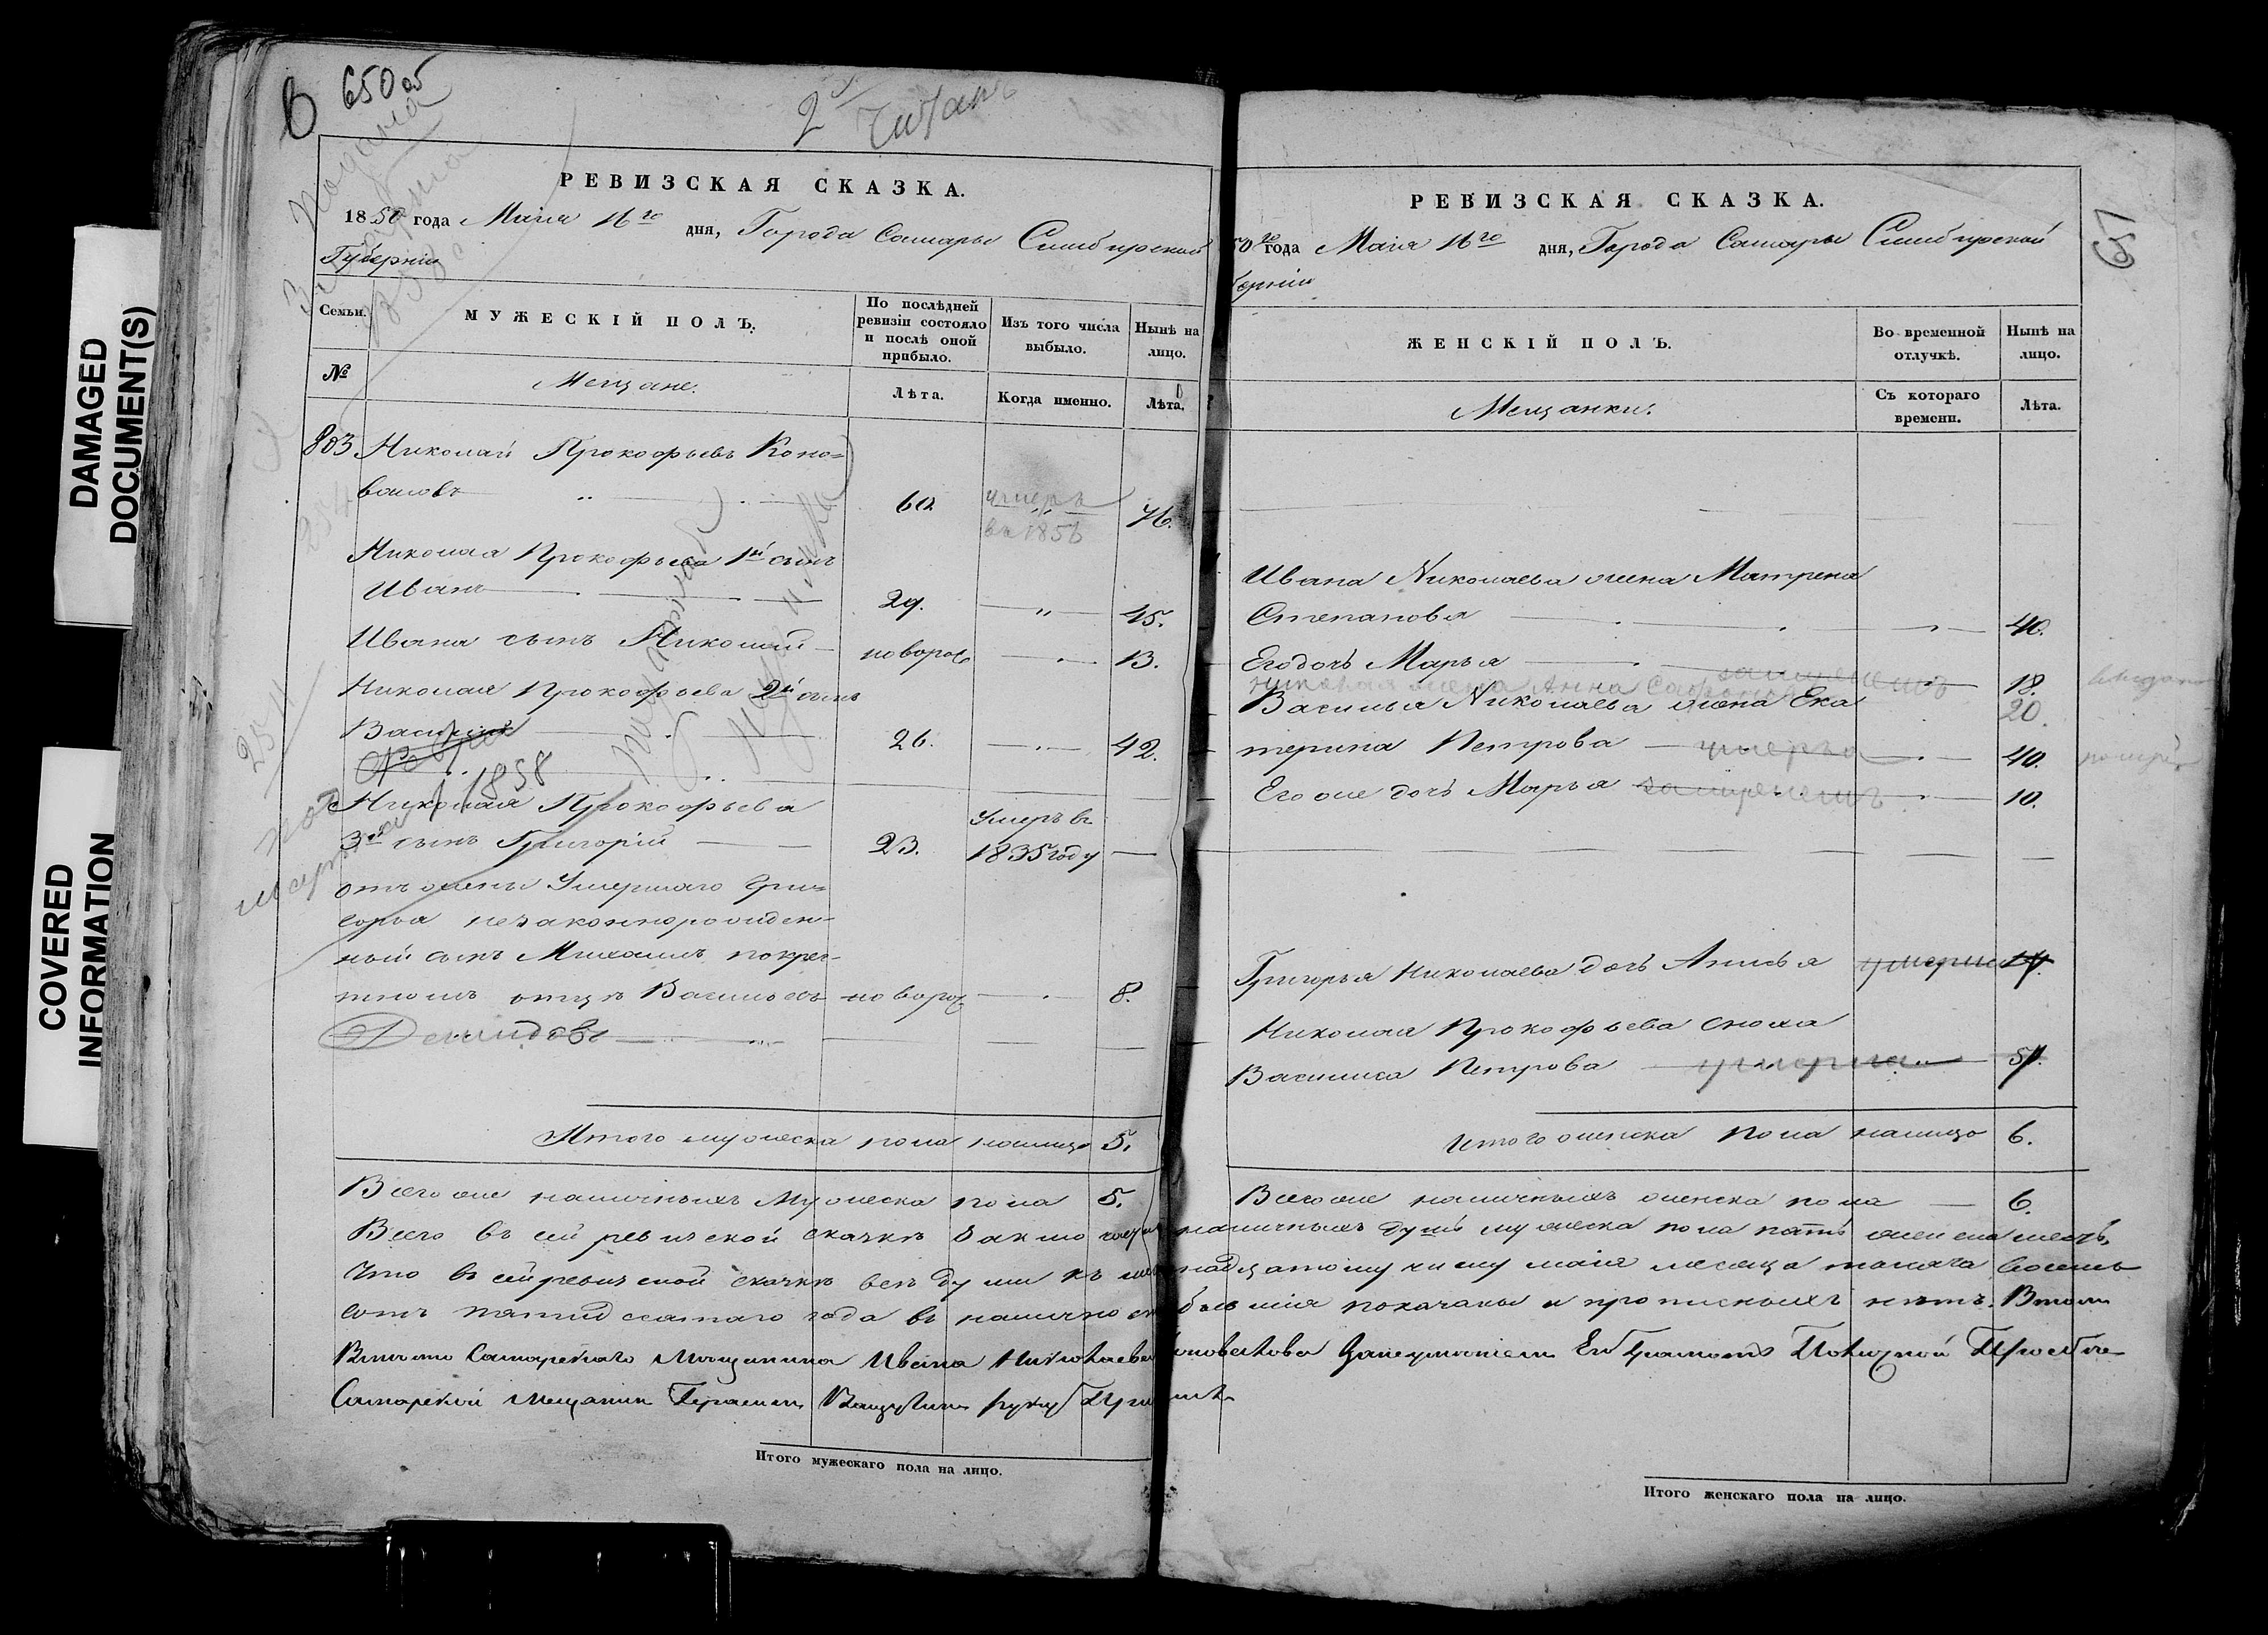 DAMAGED
DOCUMENT(S)
COVERED
INFORMATION
650 об
2
Читанъ
РЕВИЗСКАЯ СКАЗКА.
1850 года Маія 16го дня, Города Самары Симбирской
Губерніи
Семьи.
МУЖЕСКІЙ ПОЛЪ.
По послѣдней ревизіи состояло и послѣ оной прибыло.
Изъ того числа выбыло.
Нынѣ на лицо.
№
Мещане.
Лѣта.
Когда именно.
Лѣта.
803 Николай Прокофьевъ Коно=
валовъ 60. умеръ въ 1856 76.
Николая Прокофьева 1й сынъ
Иванъ 29. " 45.
Ивана сынъ Николай новорож 13.
Николая Прокофьева 2й сынъ
Василий 26. 42.
1858
Николая Прокофьева
3й сынъ Григорій 23. Умеръ въ 1835 году
отъ жены Умершаго Гри=
горья незаконнорожден=
ный сынъ Михаилъ по крес=
тномъ отцѣ Васильевъ новорож 8.
Демидовъ
Итого мужеска пола налицо 5.
Всего же наличныхъ Мужеска пола 5.
РЕВИЗСКАЯ СКАЗКА.
651
50го года Маія 16го дня, Города Самары Симбирской
берніи
ЖЕНСКІЙ ПОЛЪ.
Во временной отлучкѣ.
Нынѣ на лицо.
Мещанки.
Съ котораго времени.
Лѣта.
Ивана Николаева жена Матрена
Степанова 40.
Его дочь Марья замужемъ 18.
жена Анна 20.
Василья Николаева жена Ека
терина Петрова умерла 40.
Его же дочь Марья замужемъ 10.
Григорья Николаева дочь Анисья умерла 17.
Николая Прокофьева сноха
Василиса Петрова умерла 51.
Итого женска пола налицо 6.
Всего же наличныхъ женска пола 6.
Всего въ сей ревизской сказкѣ заключает наличныхъ душъ мужеска пола пять женска шесть,
Что въ сей ревизской сказкѣ всѣ души къ шес надцатому числу маія месяца тысяча восемь
сотъ пятидесятаго года въ наличности бывшія показаны и прописныхъ нѣтъ. Втом
Вместо Самарскаго Мещанина Ивана Николаева оновалова Занеумениемъ Ево Грамоте Поличной Прозбе
Самарской мещанин Герасим руку При ил
Итого мужескаго пола на лицо.
Итого женскаго пола на лицо.